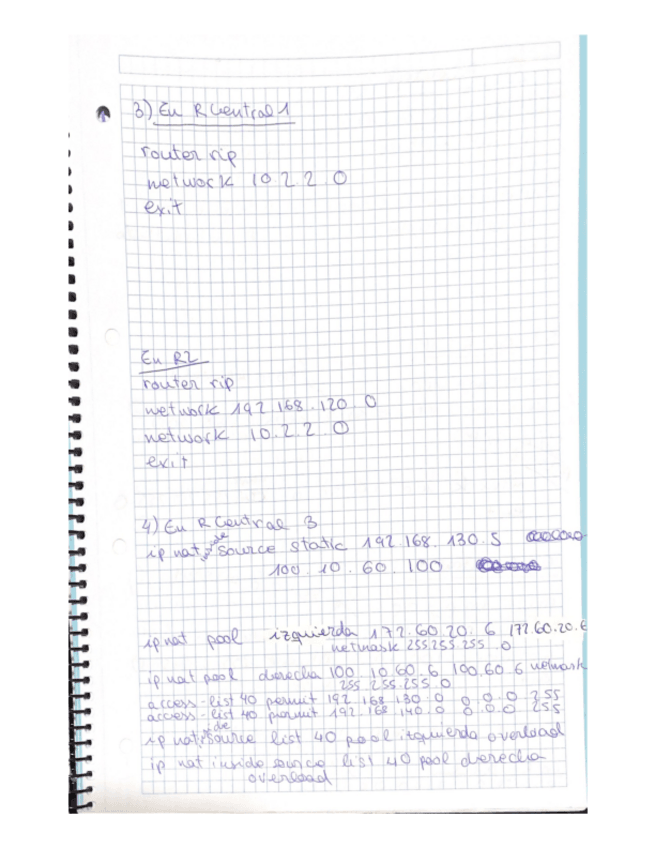 3) En R Central 1
router rip
network 10 2 2 0
exit
En R2
router rip
network 192 168 . 120 . 0
network 10. 2. 2 0
exit
4) En R Central 3
ip nat inside source static 192 168 . 130 . 5
100 . 10 . 60 . 100
ip nat pool izquierda 172. 60 20. 6 172.60.20.6
netmask 255.255.255 . 0
ip nat pool derecha 100 . 10 60 . 6 100.60.6 netmask
255 . 255.255 0
access-list 40 permit 192 168 . 130 . 0 0 . 0 . 0 255
access-list 40 permit 192 . 168 140 . 0 0 . 0 . 0 255
ip nat inside source list 40 pool izquierda overload
ip nat inside source list 40 pool derecha
overload